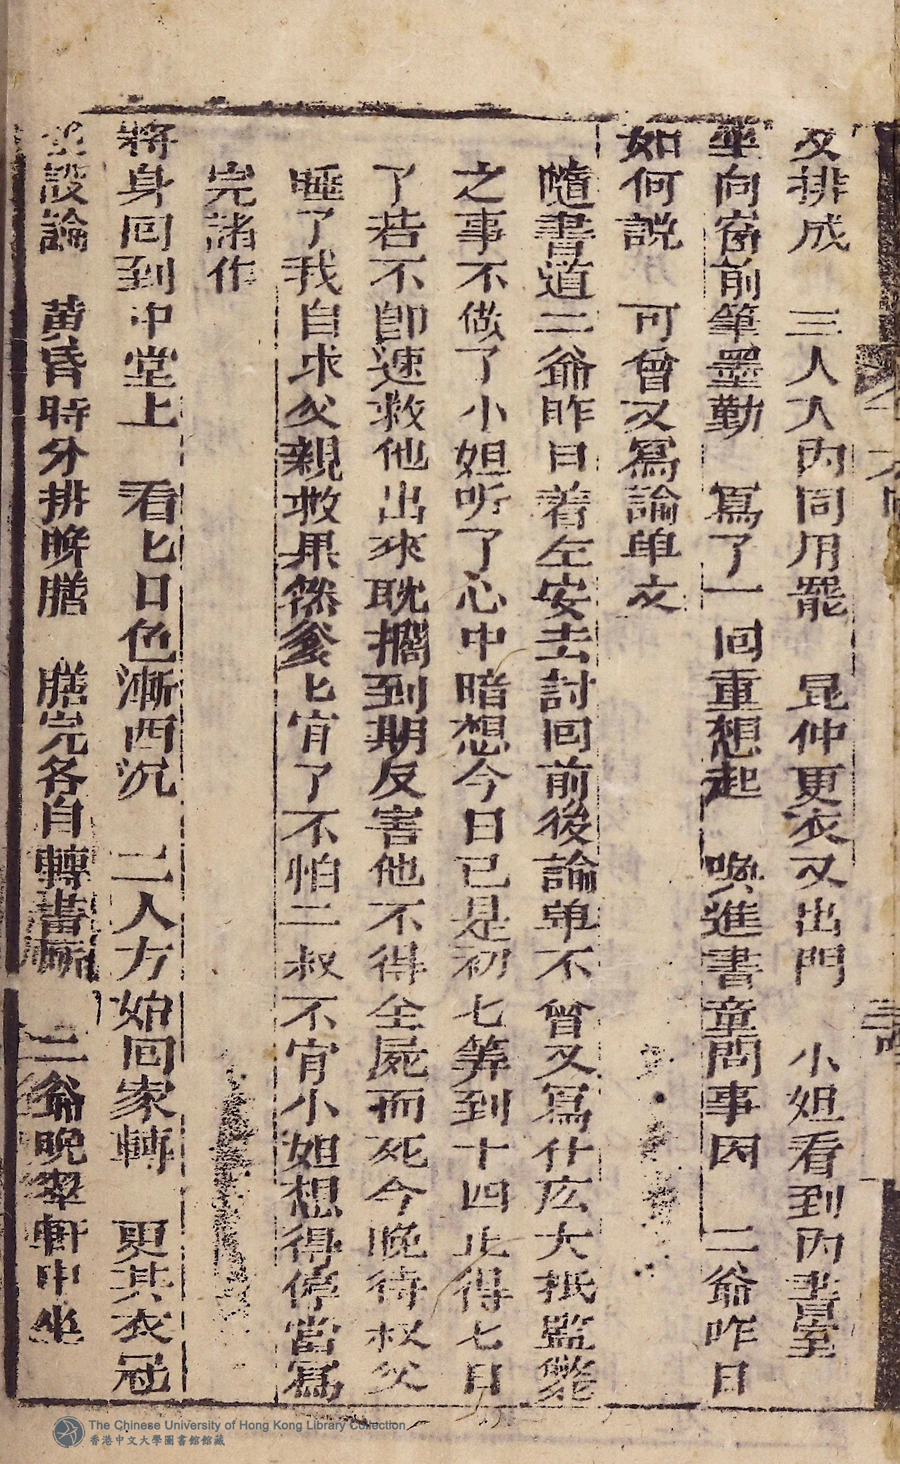 又排成　三人入內同用罷　昆仲更衣又出門　小姐看到內書室
坐向窗前筆墨勤　寫了一回重想起　喚進書童問事因　二爺昨日
如何說　可曾又寫論单文
隨書道二爺昨日着左安去討回前後論单不曾又寫什広大抵監斃
之事不做了小姐听了心中暗想今日已是初七筭到十四止得七日
了若不卽速救他出來耽擱到期反害他不得全屍而死今晚待叔父
睡了我自求父親救果然爹匕肯了不怕二叔不肯小姐想得停當寫
完諸作
將身回到中堂上　看匕日色漸西沉　二人方始回家轉　更其衣冠
設論　黄昏時分排晚膳　膳完各自轉書廂　二爺晚翠軒中坐
The Chinese University of Hong Kong Library Collection
香港中文大學圖書館館藏